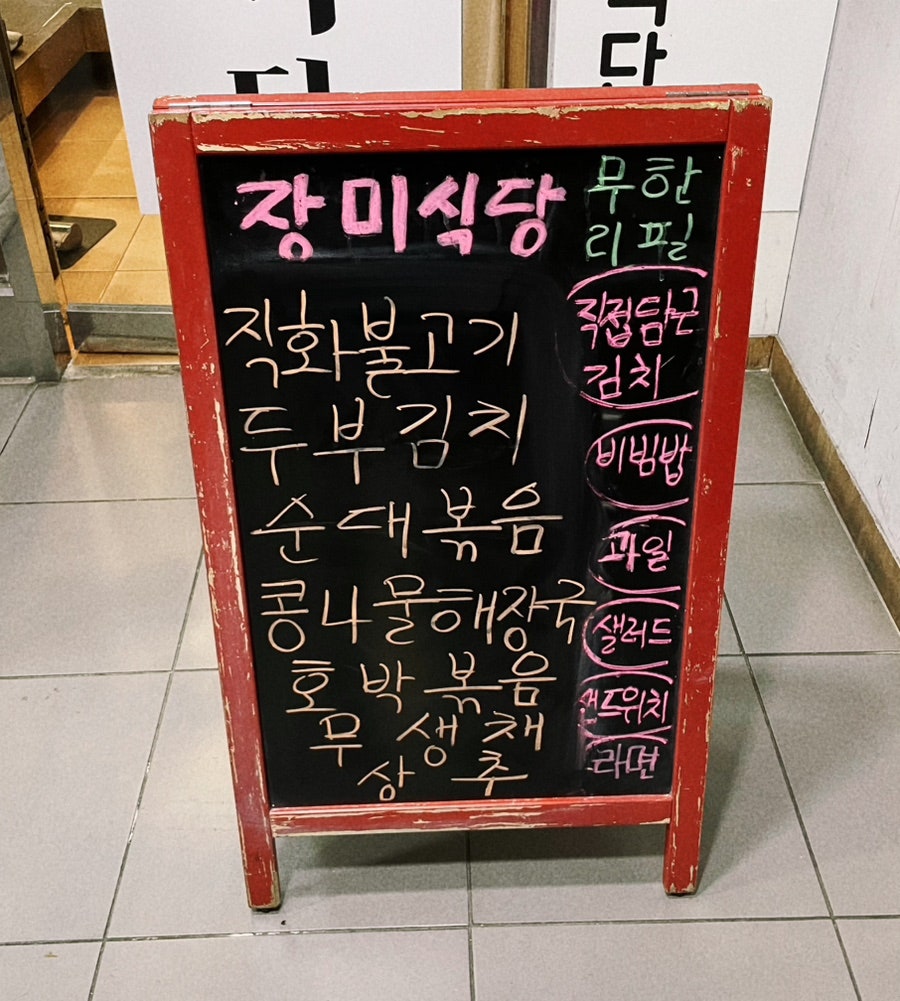 식당
장미식당
직화불고기
두부김치
순대볶음
콩나물해장국
호박볶음
무생채
상추
무한
리필
직접담근
김치
비빔밥
과일
샐러드
샌드위치
라면